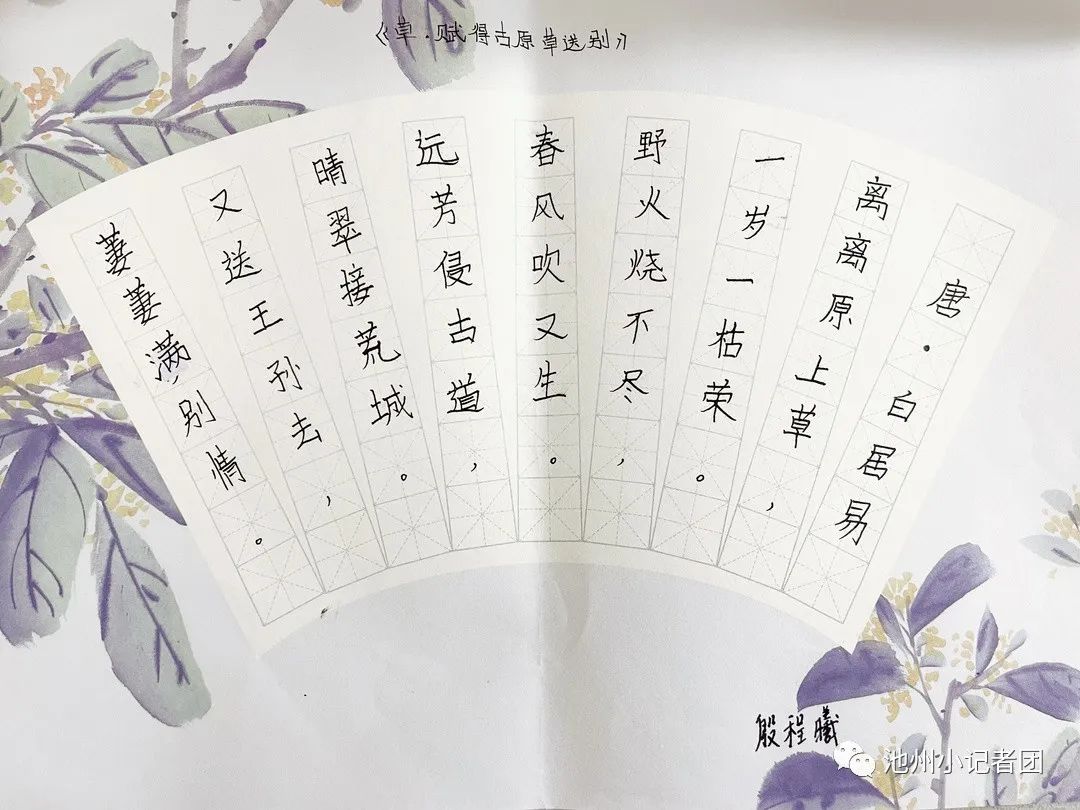 《草·赋得古原草送别》
唐·白居易
离离原上草，
一岁一枯荣。
野火烧不尽，
春风吹又生。
远芳侵古道，
晴翠接荒城。
又送王孙去，
萋萋满别情。
殷程曦
池州小记者团